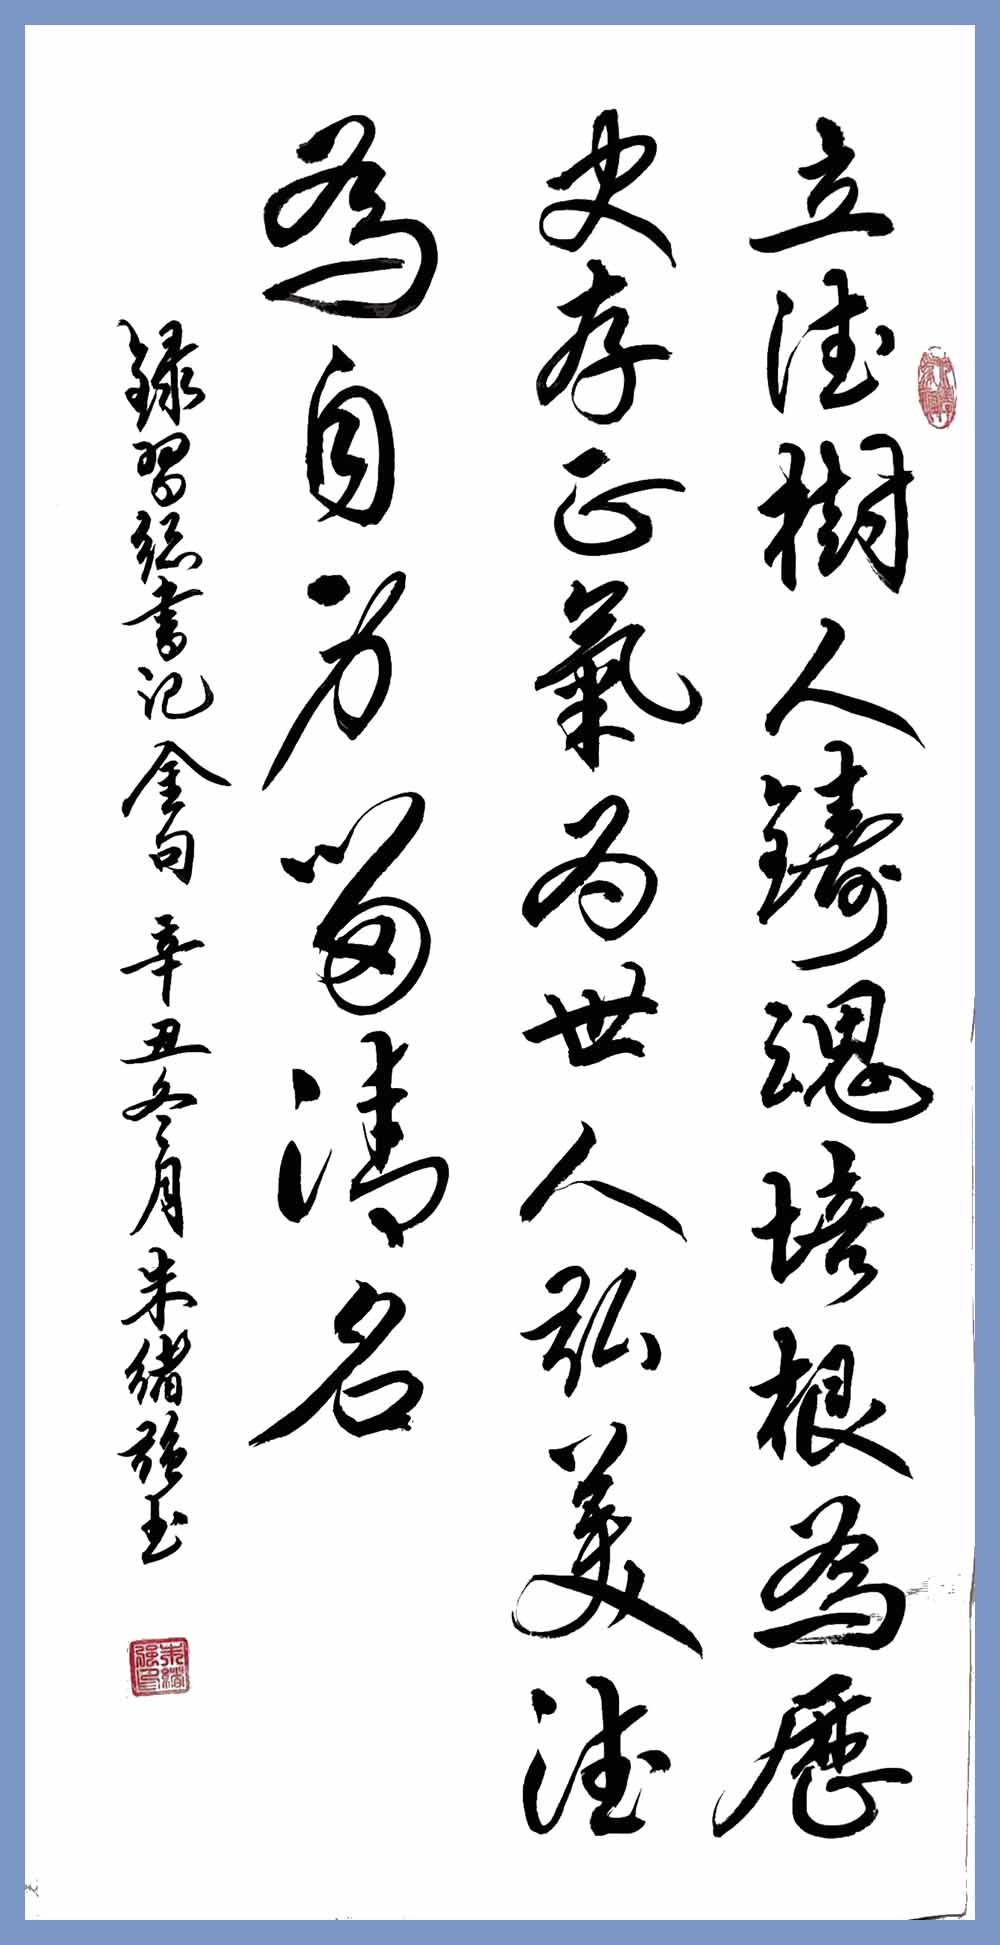 立德樹人鑄魂培根為歷
史存正氣为世人弘美德
為自身留清名
録習總書记金句 辛丑冬月朱緒強书
朱緒強印